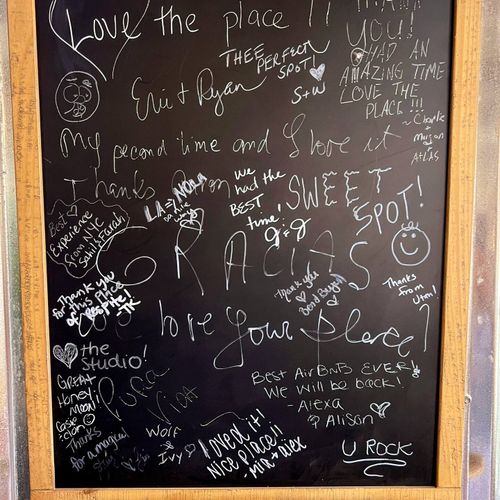 Love the place !!
THANK
YOU!
HAD AN
AMAZING TIME
LOVE THE
PLACE !!!
~ Charlie
+
Morgan
+
ATLAS
THEE PERFECT
SPOT!
S+W
Eric + Ryan
My second time and I love it
Thanks
LA = NOLA
We
had the
BEST
time!
g=g
SWEET
SPOT!
Best
Experience
from NYC
GRACIAS
Thank you
for this place
of respite!
-TK
Thank you
Thanks
from
Utah!
Love Your Place!
the
Studio!
GREAT
Honey
Moon!
Thanks
for a magical
Pura
Vida
Wolf
+
Ivy
Best AirBNB EVER!
We will be back!
- Alexa
& Alison
I loved it!
Nice Place!!
U ROCK